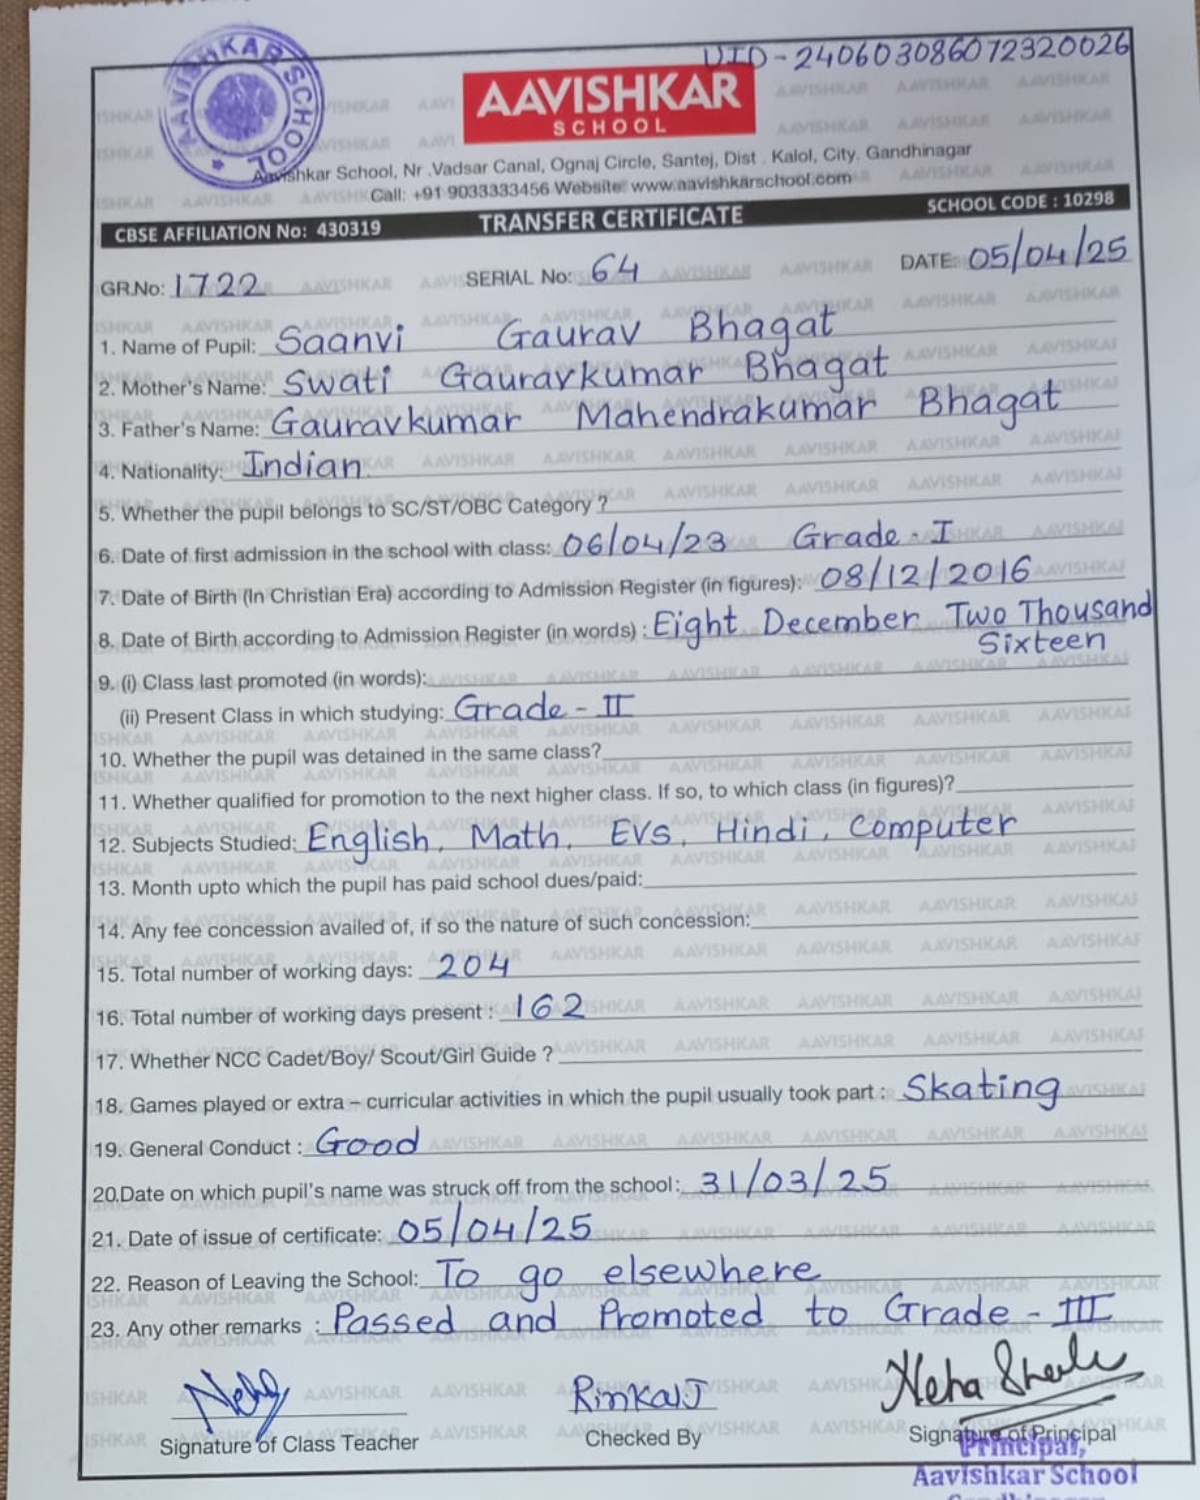 UID-240603086072320026
AAVISHKAR SCHOOL
AAVISHKAR
SCHOOL
Aavishkar School, Nr .Vadsar Canal, Ognaj Circle, Santej, Dist . Kalol, City. Gandhinagar
Call: +91 9033333456 Website: www.aavishkarschool.com
CBSE AFFILIATION No: 430319 TRANSFER CERTIFICATE SCHOOL CODE : 10298
GR.No: 1722 SERIAL No: 64 DATE: 05/04/25
1. Name of Pupil: Saanvi Gaurav Bhagat
2. Mother's Name: Swati Gauravkumar Bhagat
3. Father's Name: Gauravkumar Mahendrakumar Bhagat
4. Nationality: Indian
5. Whether the pupil belongs to SC/ST/OBC Category ?
6. Date of first admission in the school with class: 06/04/23 Grade - I
7. Date of Birth (In Christian Era) according to Admission Register (in figures): 08/12/2016
8. Date of Birth according to Admission Register (in words) : Eight December Two Thousand
Sixteen
9. (i) Class last promoted (in words):
(ii) Present Class in which studying: Grade - II
10. Whether the pupil was detained in the same class?
11. Whether qualified for promotion to the next higher class. If so, to which class (in figures)?
12. Subjects Studied: English, Math, EVS, Hindi, Computer
13. Month upto which the pupil has paid school dues/paid:
14. Any fee concession availed of, if so the nature of such concession:
15. Total number of working days: 204
16. Total number of working days present : 162
17. Whether NCC Cadet/Boy/ Scout/Girl Guide ?
18. Games played or extra – curricular activities in which the pupil usually took part : Skating
19. General Conduct : Good
20.Date on which pupil's name was struck off from the school: 31/03/25
21. Date of issue of certificate: 05/04/25
22. Reason of Leaving the School: To go elsewhere
23. Any other remarks : Passed and Promoted to Grade - III
Neha RinkalJ Neha
Signature of Class Teacher Checked By Signature of Principal
Principal,
Aavishkar School